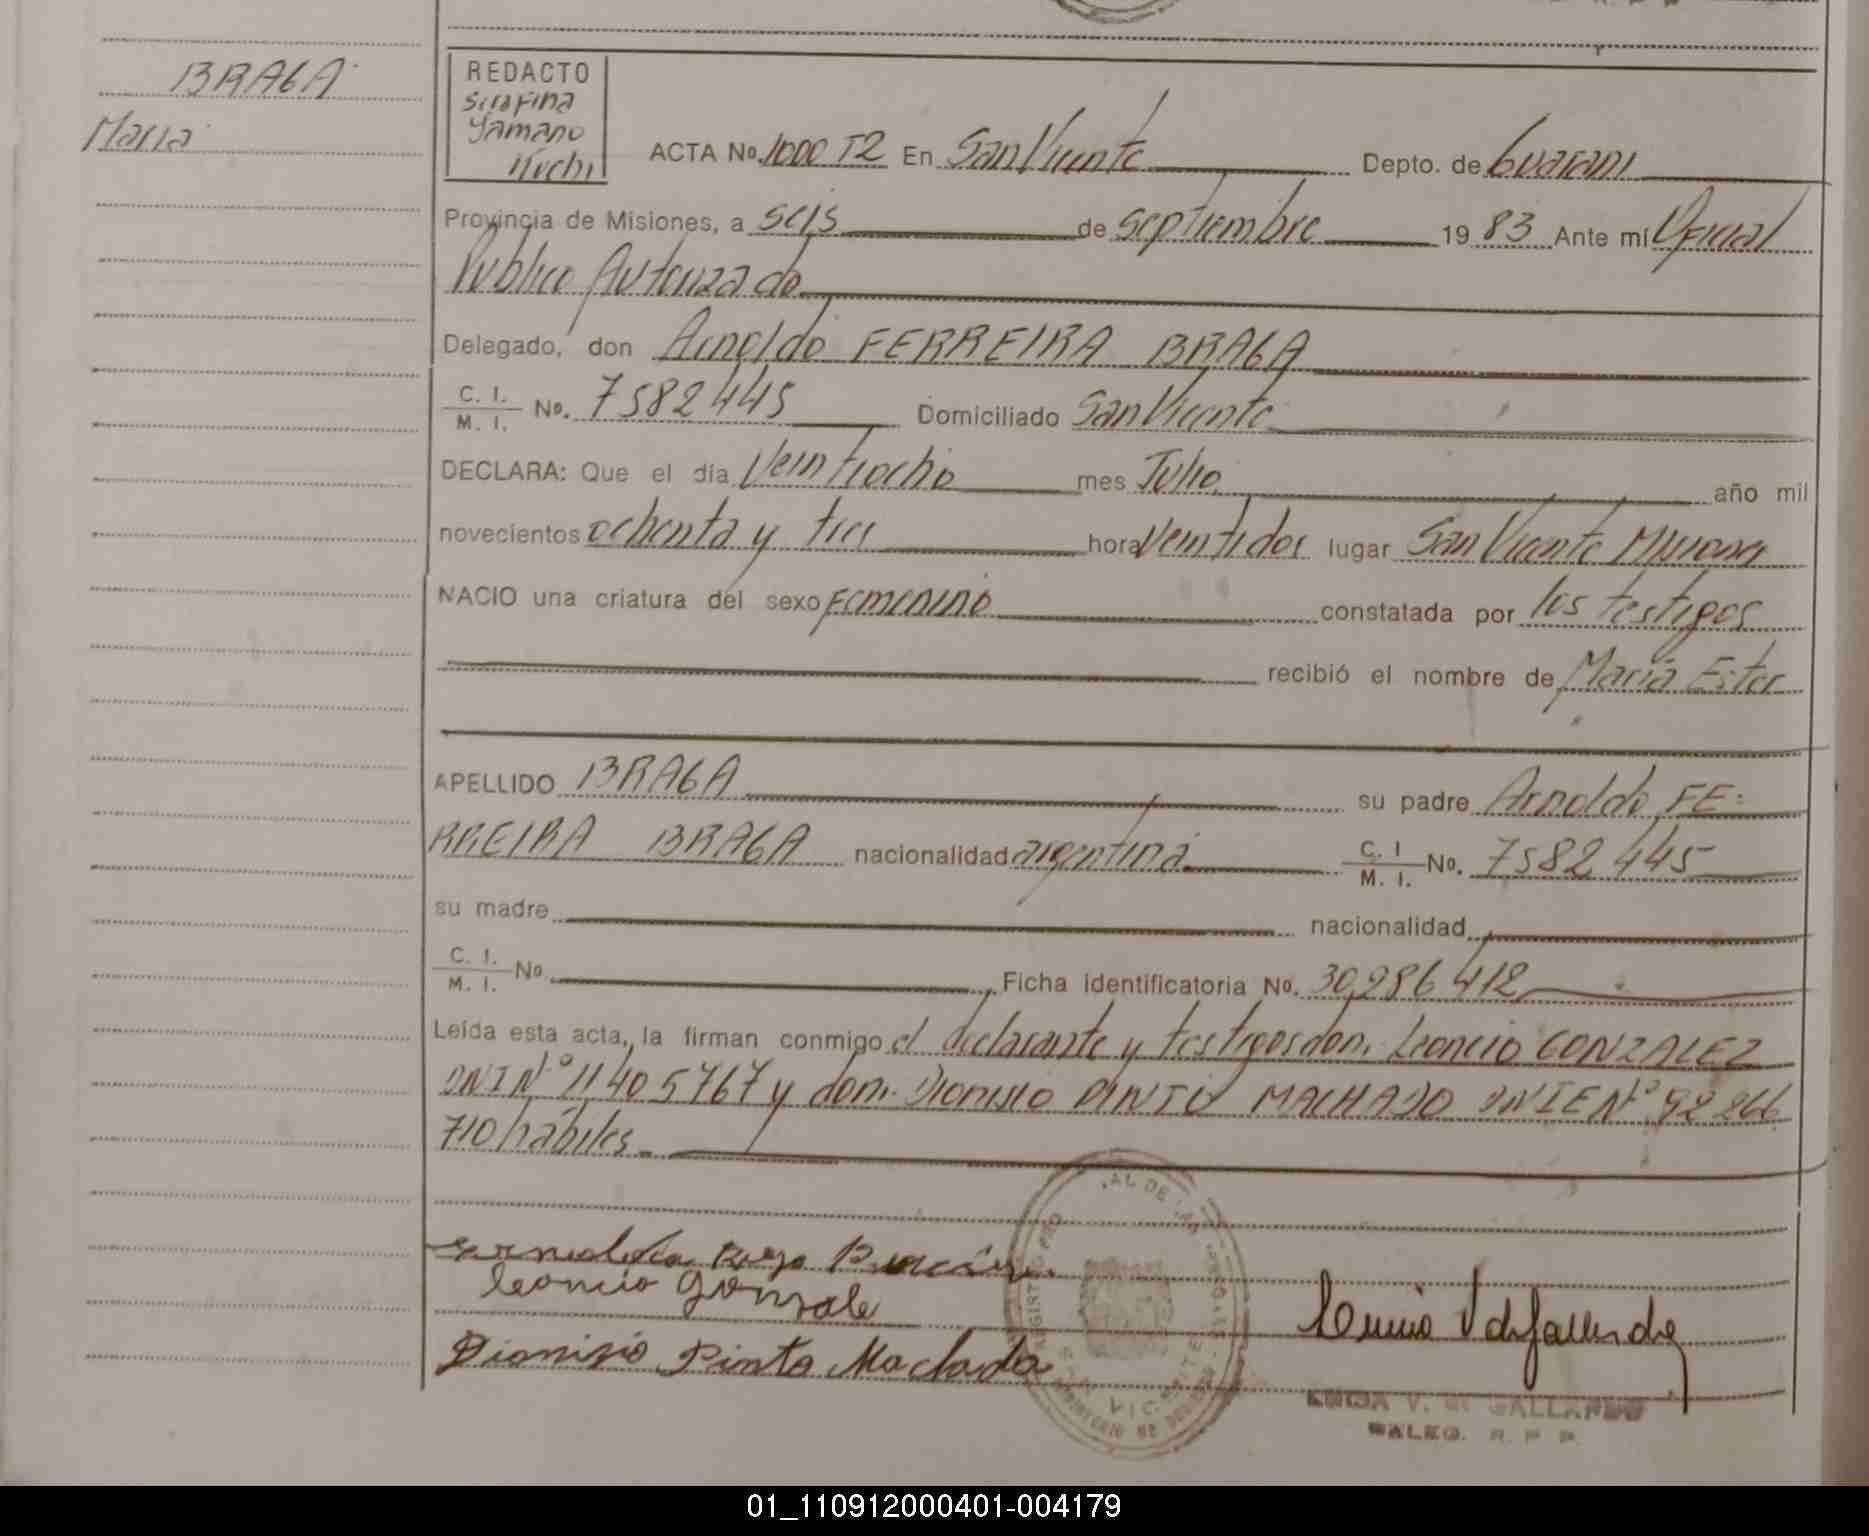 BRAGA
Maria
REDACTO
Serafina
Yamano
Kuchi
ACTA No. 1000 T2 En San Vicente Depto. de Guarani
Provincia de Misiones, a seis de septiembre 19 83 Ante mí Oficial
Publico Autorizado
Delegado, don Arnoldo FERREIRA BRAGA
C. I.
M. I. No. 7582445 Domiciliado San Vicente
DECLARA: Que el día Veintiocho mes Julio año mil
novecientos ochenta y tres hora veintidos lugar San Vicente Misiones
NACIO una criatura del sexo femenino constatada por los testigos
recibió el nombre de Maria Ester
APELLIDO BRAGA su padre Arnoldo FE-
RREIRA BRAGA nacionalidad argentina C. I
M. I. No. 7582445
su madre nacionalidad
C. I.
M. I. No Ficha identificatoria No. 30,286,412
Leída esta acta, la firman conmigo el declarante y testigos don. Leoncio GONZALEZ
DNI Nº 11405767 y don. Dionisio PINTO MACHADO DNIE Nº 92266
710 hábiles.
Leoncio Gonzale
Dionisio Pinto Machado
V. de GALLARDO
R. P. P.
01_110912000401-004179